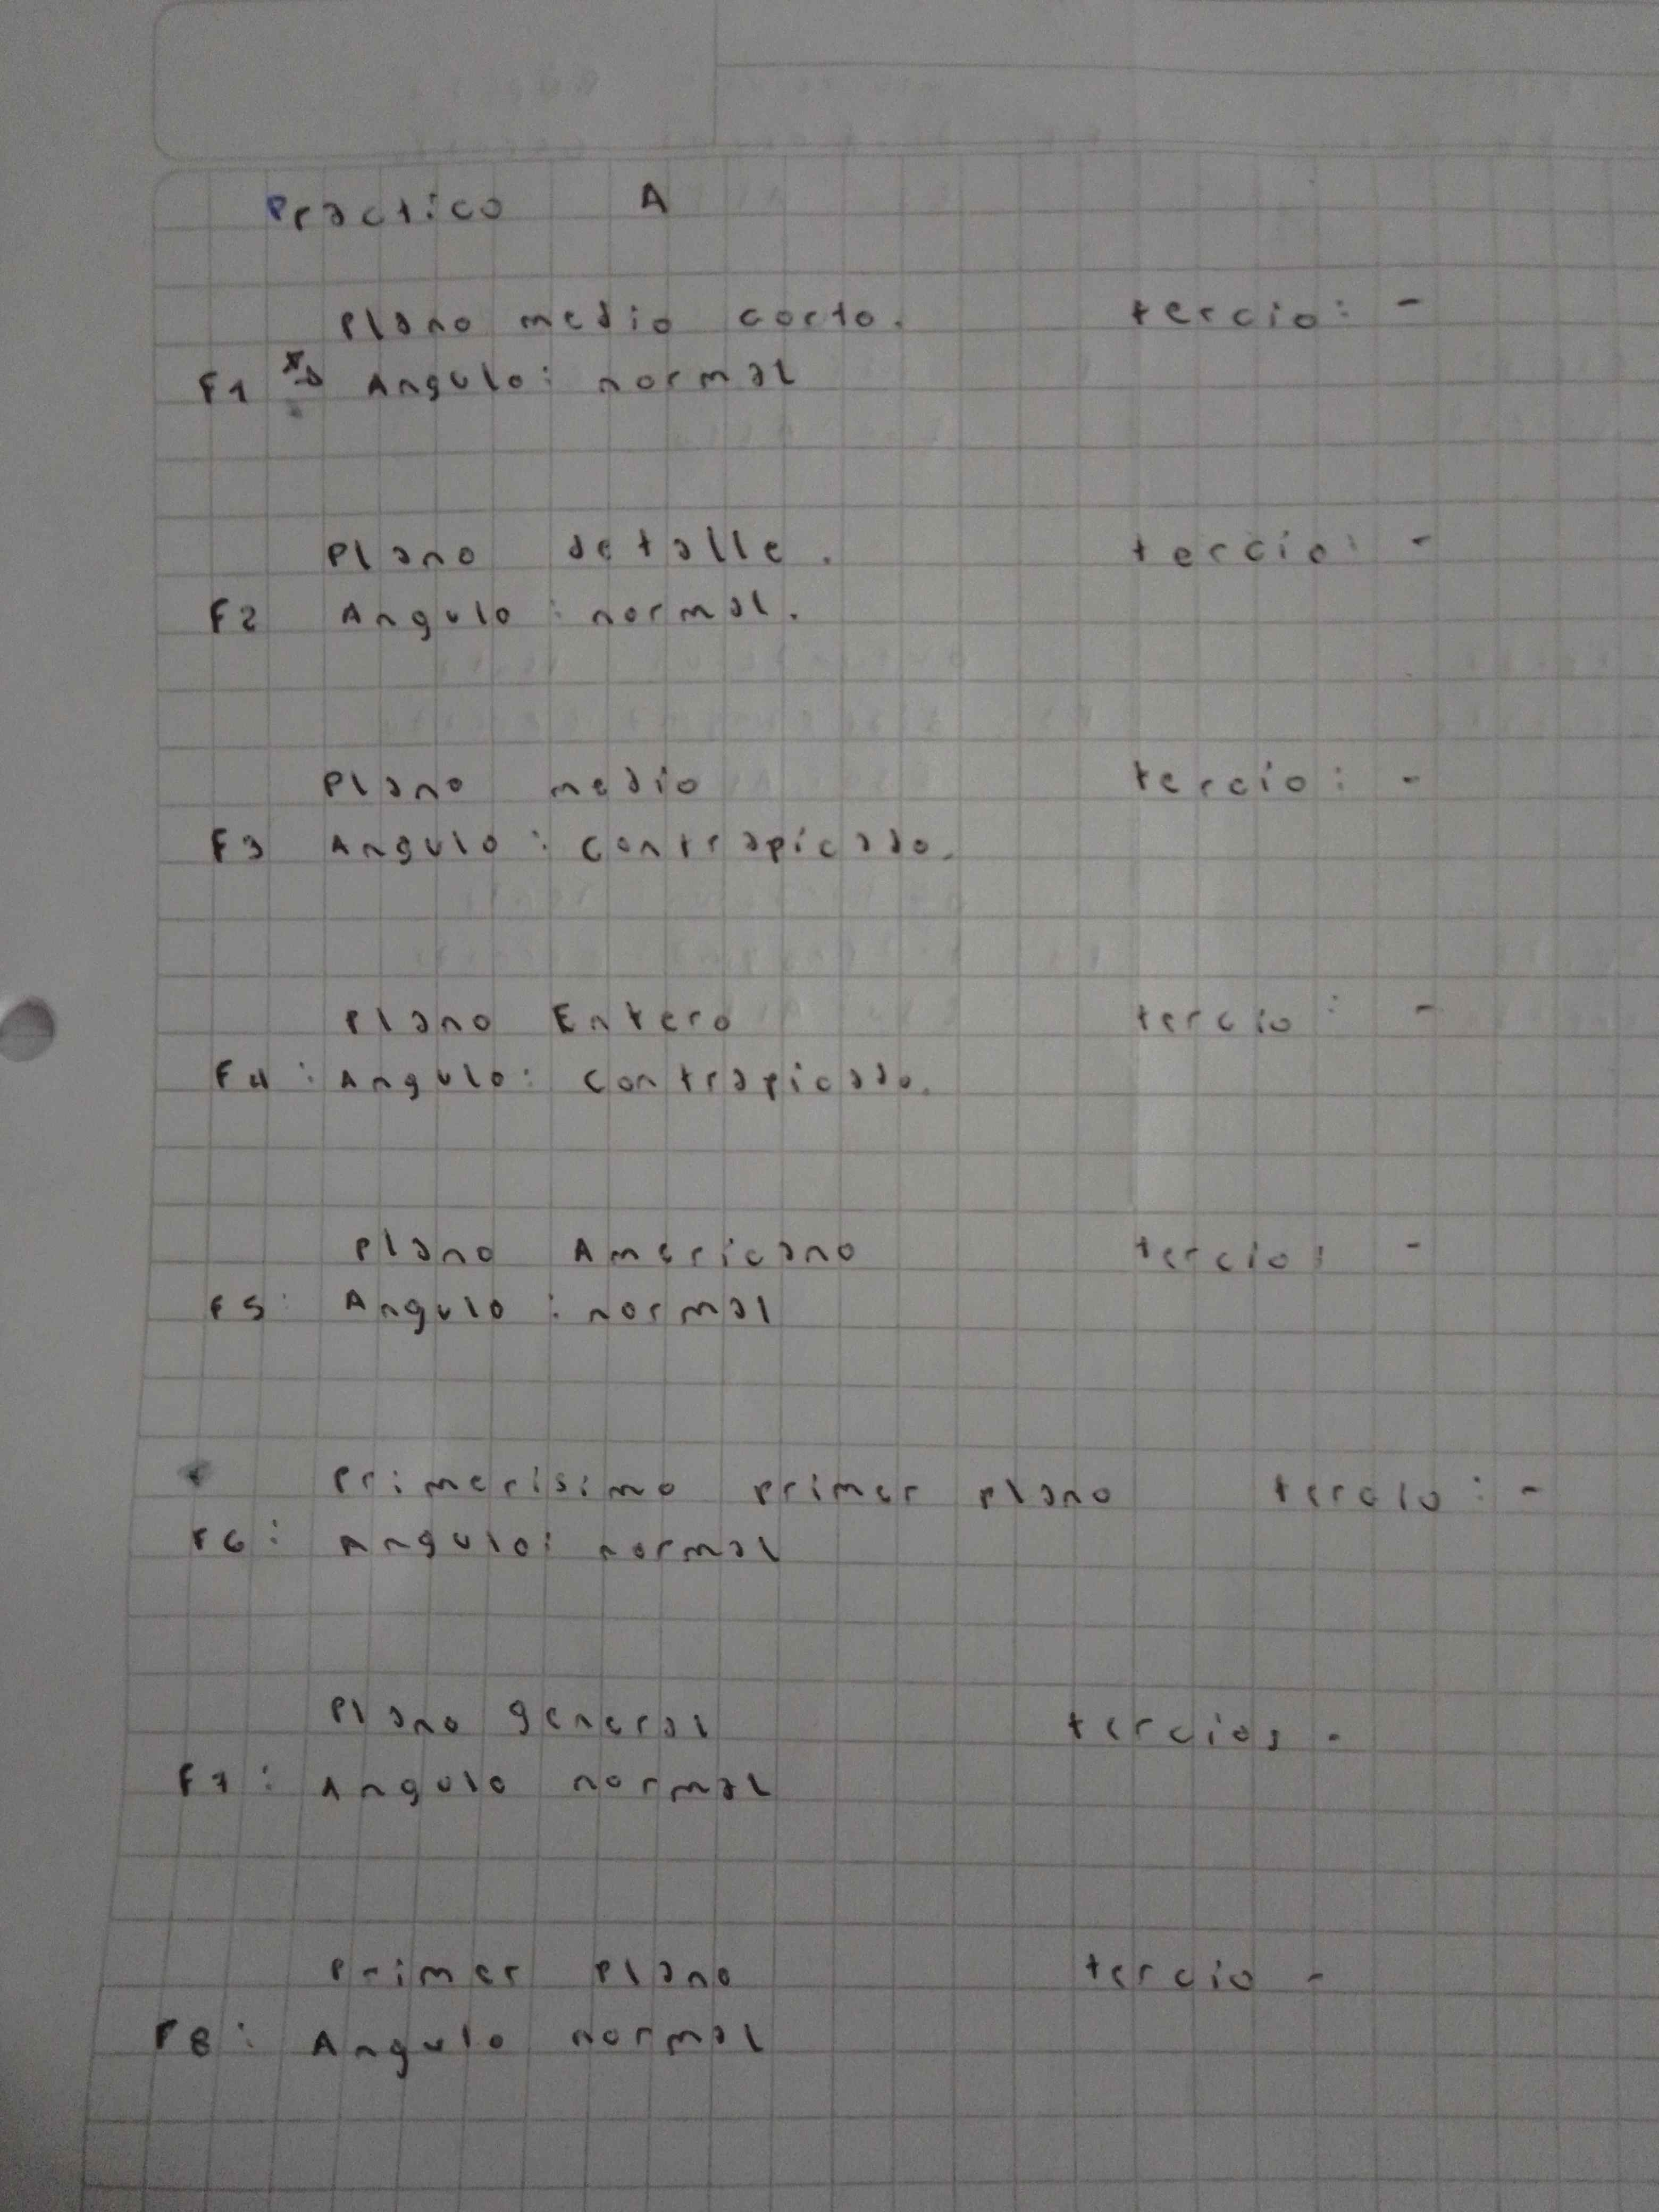 Practico A
Plano medio corto. tercio: -
F1 Angulo: normal
Plano detalle. tercio: -
F2 Angulo: normal.
Plano medio tercio: -
F3 Angulo: contrapicado.
Plano Entero tercio: -
F4: Angulo: contrapicado.
Plano Americano tercio: -
F5: Angulo: normal
Primerisimo primer plano tercio: -
F6: Angulo: normal
Plano general tercios -
F7: Angulo normal
Primer Plano tercio -
F8: Angulo normal